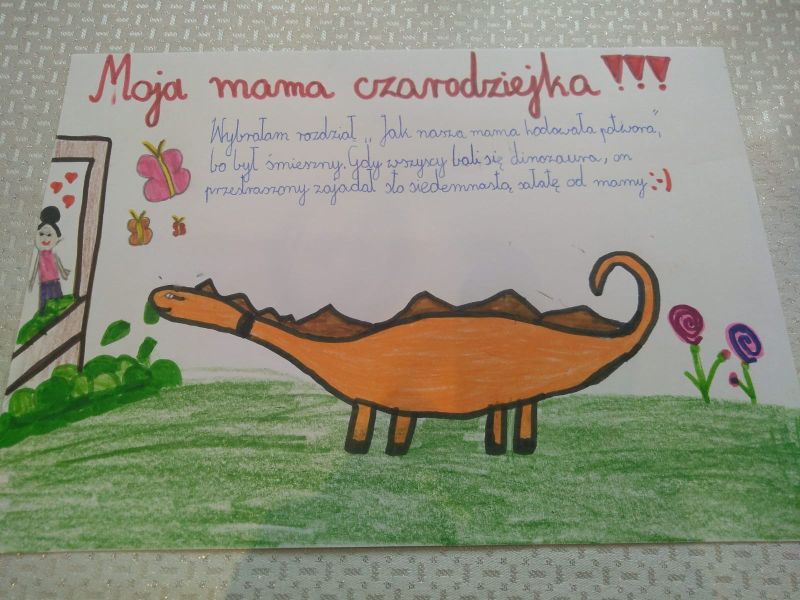 Moja mama czarodziejka !!!
Wybrałam rozdział „Jak nasza mama hodowała potwora”,
bo był śmieszny. Gdy wszyscy bali się dinozaura, on
przestraszony zajadał sto siedemnastą sałatę od mamy :-)